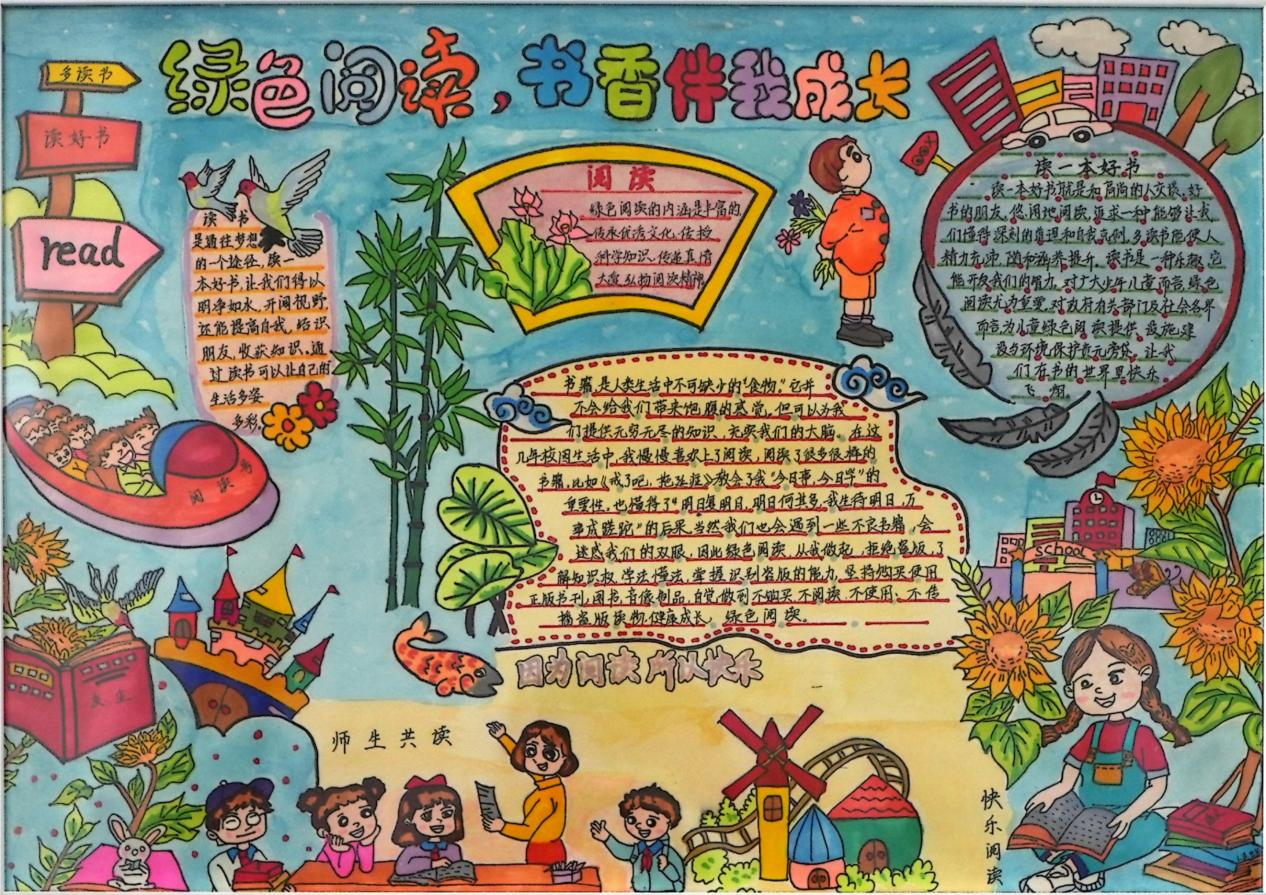 绿色阅读，书香伴我成长
多读书
读好书
read
读书
是通往梦想
的一个途径，读一
本好书，让我们得以
明净如水，开阔视野，
还能提高自我，结识
朋友，收获知识。通
过读书可以让自己的
生活多姿
多彩。
阅读
绿色阅读的内涵是丰富的，
传承优秀文化，传授
科学知识，传递真情
大爱，弘扬阅读精神
读一本好书
读一本好书就是和高尚的人交谈，好
书的朋友。悠闲地阅读，追求一种能够让我
们懂得深刻的真理和自我克制，多读书能使人
精力充沛，随和涵养提升。读书是一种乐趣，它
能开发我们的智力，对广大少年儿童而言，绿色
阅读尤为重要，对政府有关部门及社会各界
而言为儿童绿色阅读提供设施建
设与环境保护责无旁贷，让我
们在书的世界里快乐
飞翔。
书籍，是人类生活中不可缺少的“食物。”它并
不会给我们带来饱腹的感觉，但可以为我
们提供无穷无尽的知识，充实我们的大脑。在这
几年校园生活中，我慢慢喜欢上了阅读，阅读了很多很棒的
书籍，比如《戒了吧，拖延症》教会了我“今日事，今日毕”的
重要性，也懂得了“明日复明日，明日何其多，我生待明日，万
事成蹉跎”的后果。当然，我们也会遇到一些不良书籍，会
迷惑我们的双眼，因此绿色阅读，从我做起，拒绝盗版，了
解知识权，学法懂法，掌握识别盗版的能力，坚持购买使用
正版书刊，图书，音像制品，自觉做到不购买，不阅读，不使用，不传
播盗版读物，健康成长，绿色阅读。
阅读号
school
因为阅读 所以快乐
师生共读
快乐阅读